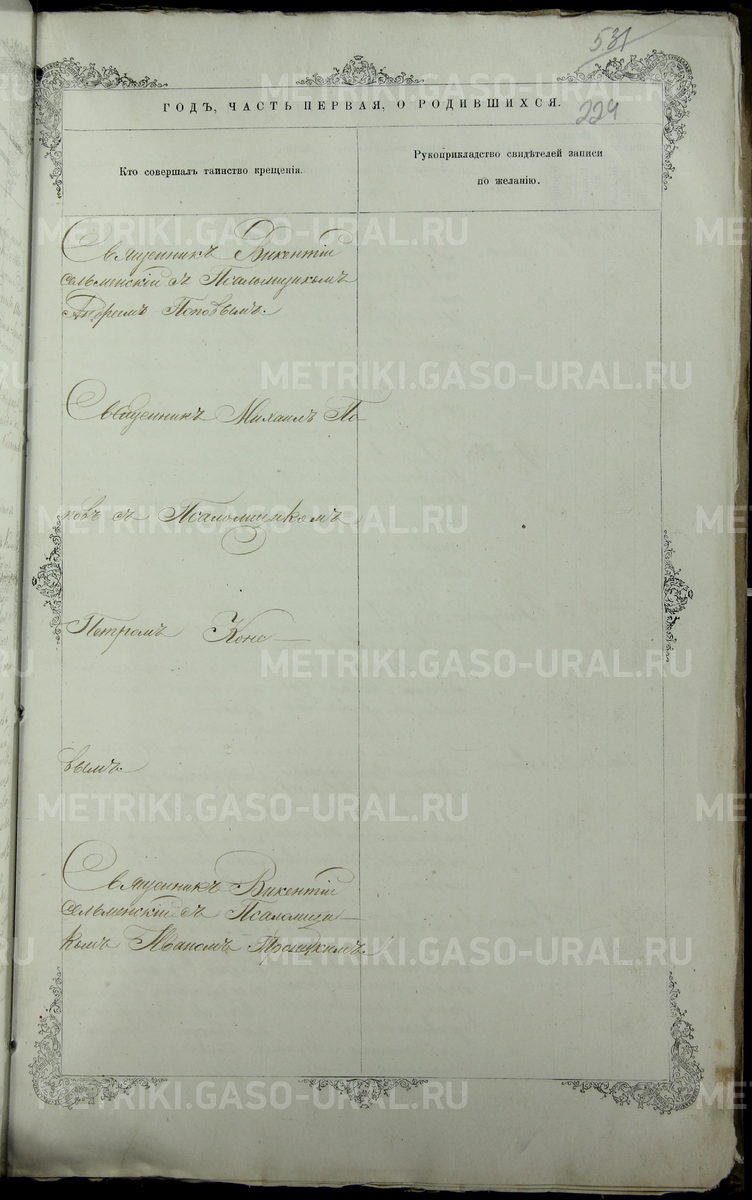 531
224
ГОДЪ, ЧАСТЬ ПЕРВАЯ, О РОДИВШИХСЯ.
Кто совершалъ таинство крещенія.
Рукоприкладство свидѣтелей записи
по желанію.
Священникъ Викентій
сельменскій съ Псаломщикомъ
Андреемъ Поповымъ.
Священникъ Михаилъ По-
повъ съ Псаломщикомъ
Петромъ Коно-
вымъ.
Священникъ Викентій
сельменскій съ Псаломщи-
комъ Иваномъ
METRIKI.GASO-URAL.RU